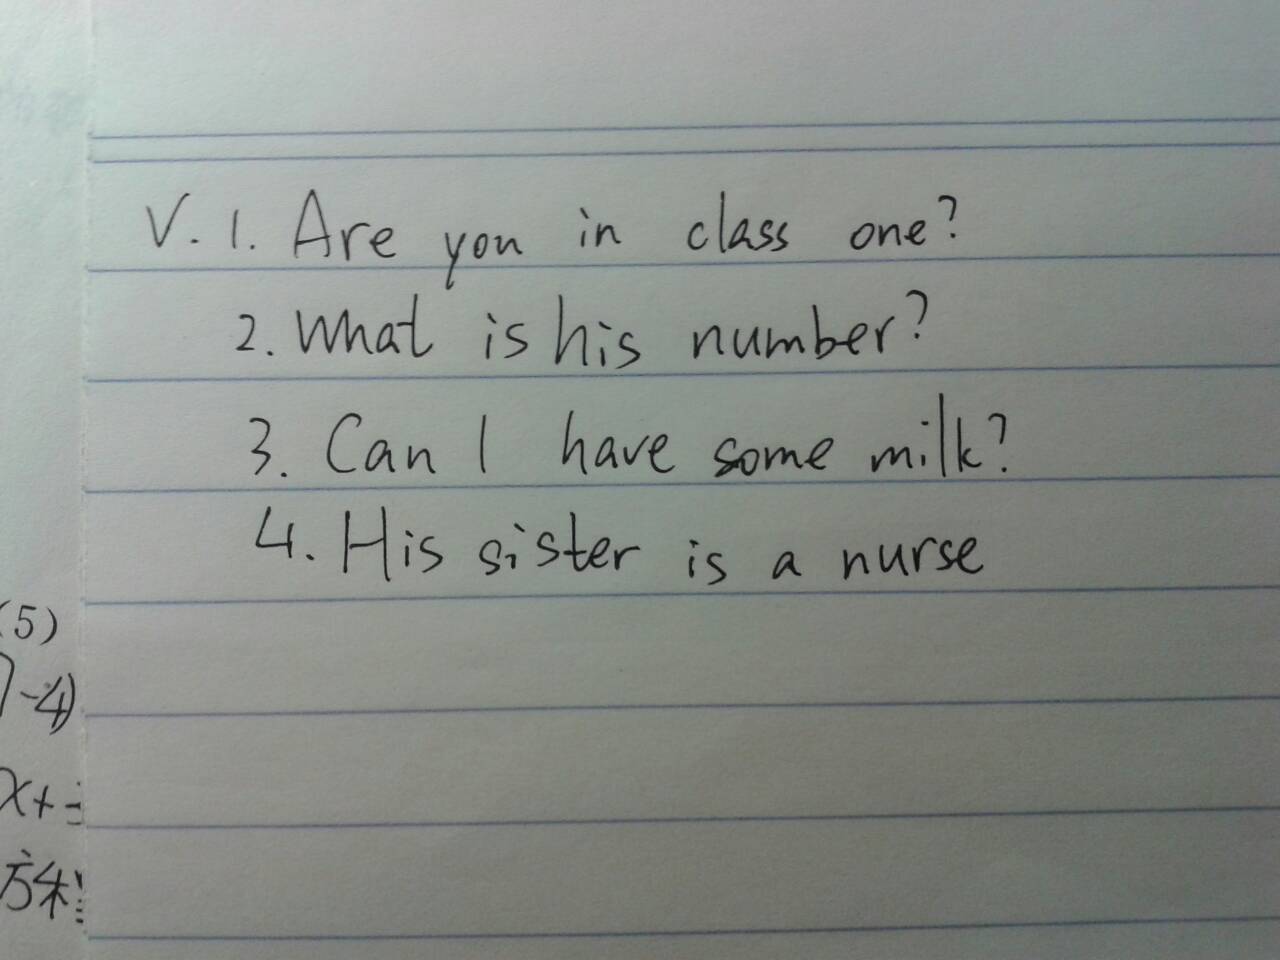 V. 1. Are you in class one?
2. What is his number?
3. Can I have some milk?
4. His sister is a nurse
(5)
-4)
x+
方